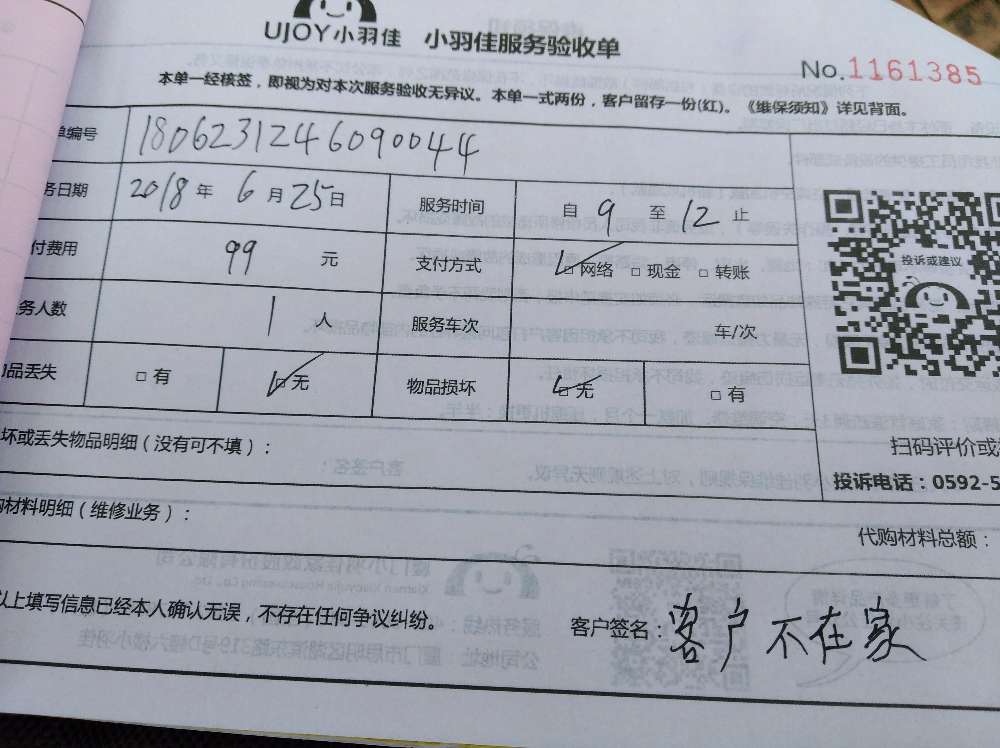 UJOY小羽佳 小羽佳服务验收单
No.1161385
本单一经核签，即视为对本次服务验收无异议。本单一式两份，客户留存一份(红)。《维保须知》详见背面。
单编号 1806231246090044
务日期 2018 年 6 月 25 日 服务时间 自 9 至 12 止
付费用 99 元 支付方式 ☑ 网络 □ 现金 □ 转账
投诉或建议
务人数 1 人 服务车次 车/次
品丢失 □ 有 ☑ 无 物品损坏 ☑ 无 □ 有
坏或丢失物品明细（没有可不填）：
扫码评价或
投诉电话：0592-5
购材料明细（维修业务）：
代购材料总额：
以上填写信息已经本人确认无误，不存在任何争议纠纷。
客户签名：客户不在家